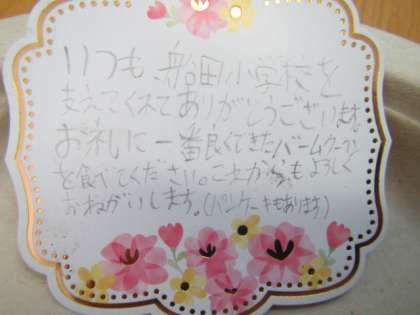 いつも、船田小学校を
支えてくれてありがとうございます。
お礼に一番良くできたバームクーヘン
を食べてください。これからもよろしく
おねがいします。(パンケーキもあります)